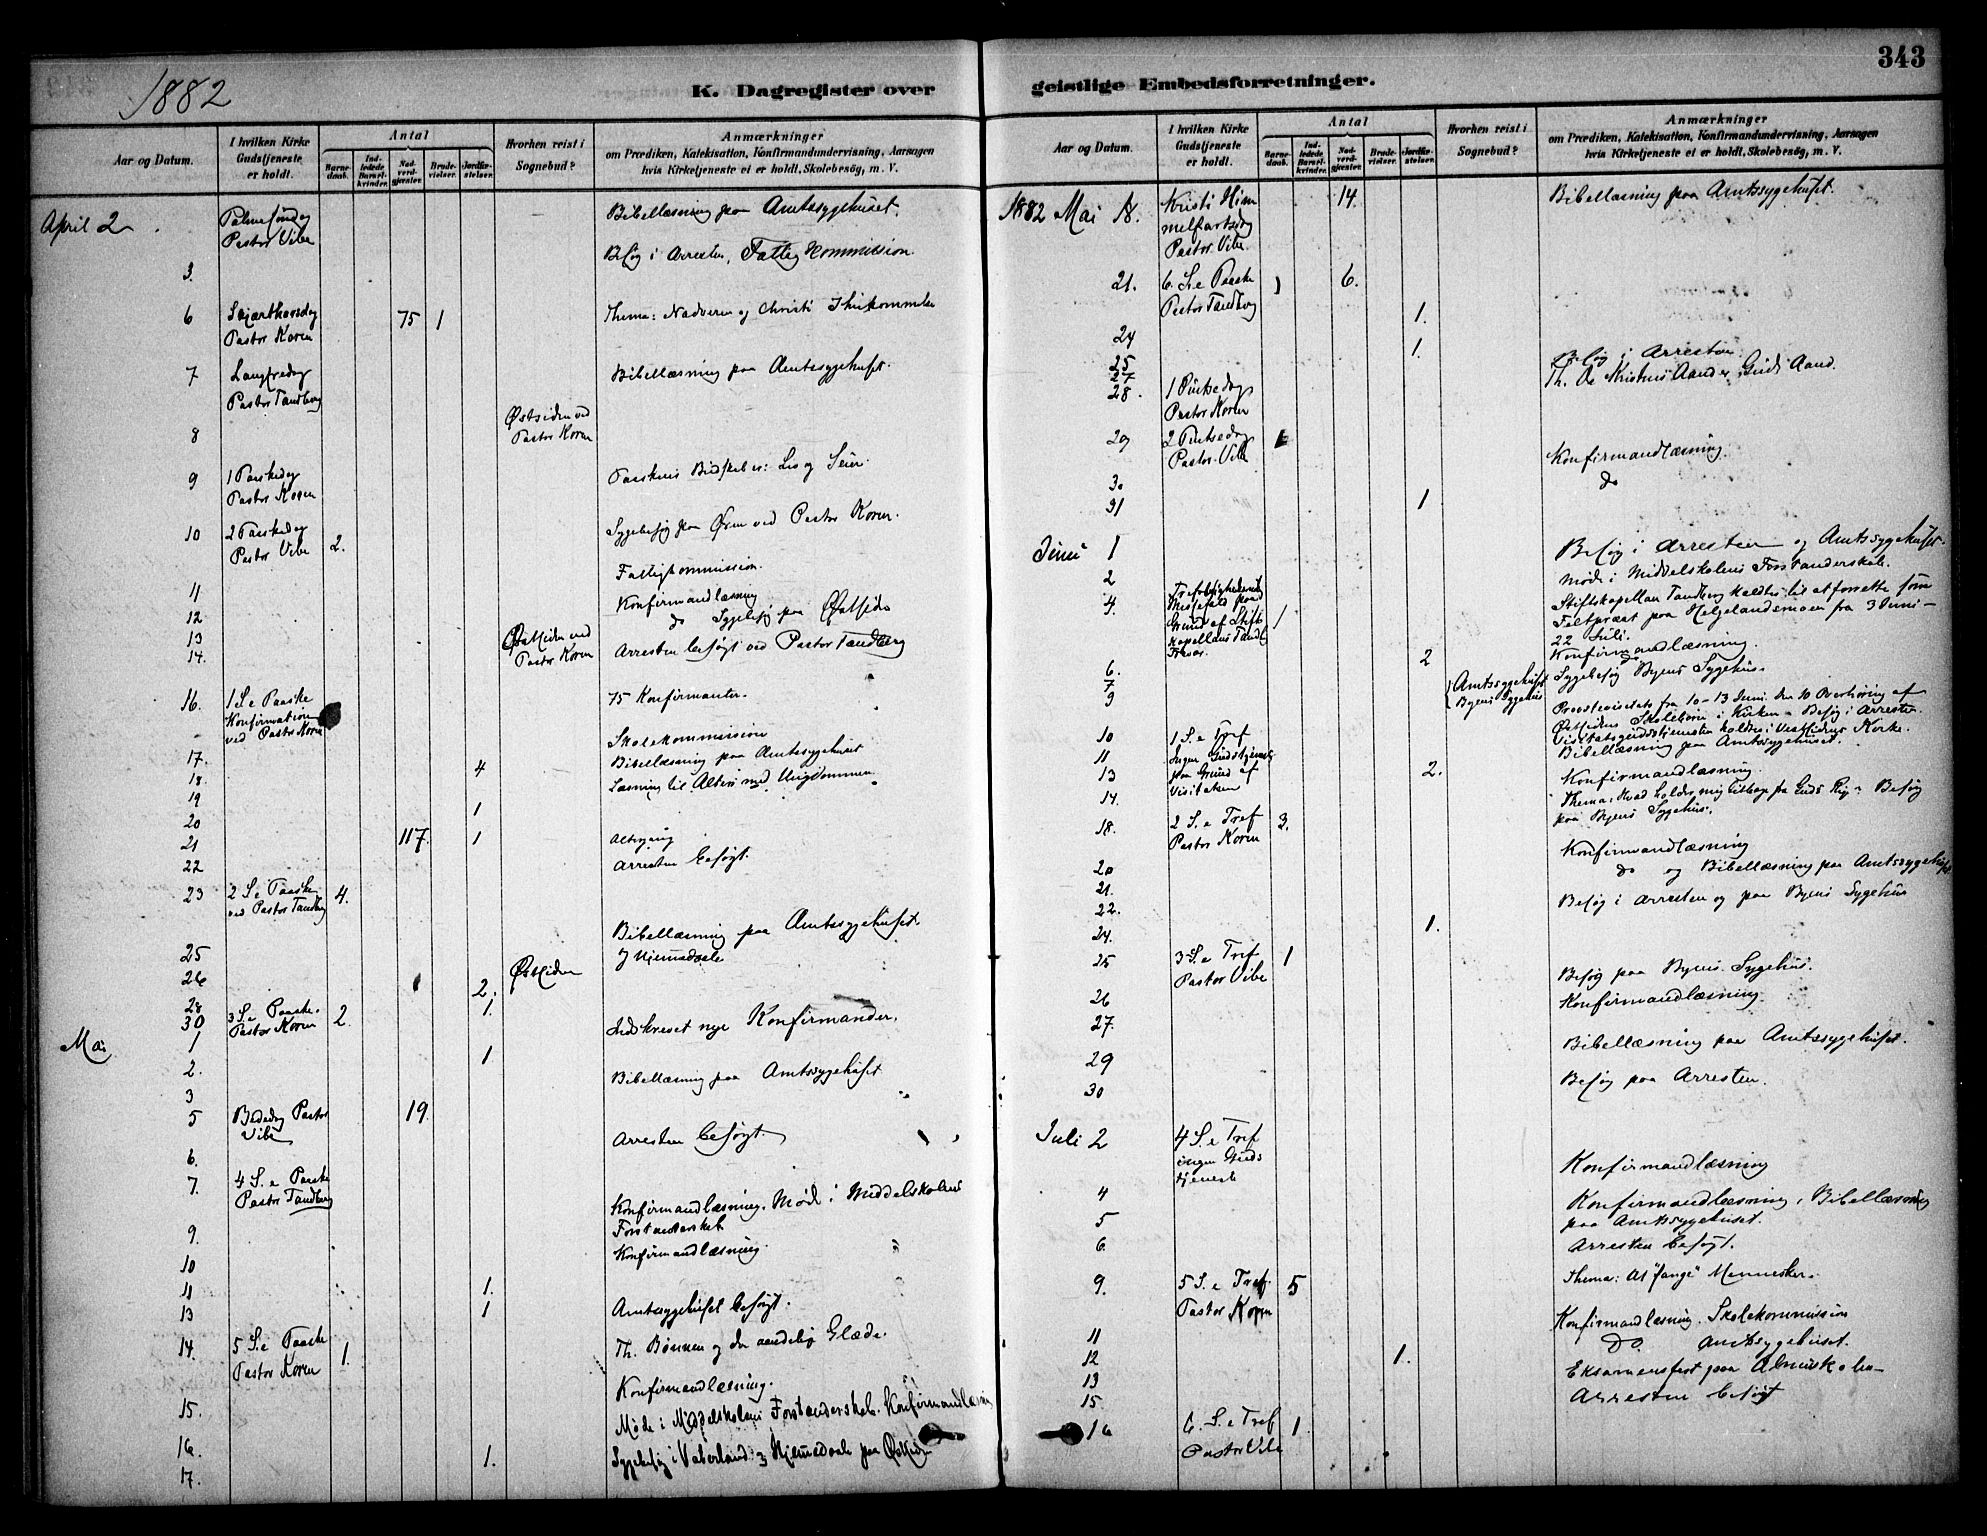 343
1882
K. Dagregister over
geistlige Embedsforretninger.
Aar og Datum.
I hvilken Kirke
Gudstjeneste
er holdt.
Antal
Barne-
daab.
Ind-
ledede
Barsel-
kvinder.
Nad-
verd-
gjæster.
Brude-
vielser.
Jordfæ-
stelser.
Hvorhen reist i
Sognebud?
Anmærkninger
om Prædiken, Katekisation, Konfirmandundervisning, Aarsagen
hvis Kirketjeneste ei er holdt, Skolebesøg, m. V.
April 2 Palmesøndag Bibellæsning paa Amtssygehuset.
Pastor Vibe
3. Besøg i Arresten, Fattigkommission.
6 Skjærthorsdag 75 1 Thema: Nadveren og Christi
Pastor Koren
7 Langfredag Bibellæsning paa Amtssygehuset.
Pastor Tandberg
8 Østsiden ved
Pastor Koren
9 1 Paaskedag Paaskens Budskab er: Liv og Seier.
Pastor Koren
10 2 Paaskedag 2. Sygebesøg paa Øren ved Pastor Koren.
Pastor Vibe
11 Fattigkommission.
12 Konfirmandlæsning
13 do Sygebesøg paa Østsida
14. Østsiden ved Arresten besøgt ved Pastor Tandberg
Pastor Koren
16. 1 S. e Paaske 75 Konfirmanter.
Konfirmation
ved Pastor Koren
17. Skolekommission
18 4 Bibellæsning paa Amtssygehuset
19 Læsning til Alters med Ungdommen
20 1
21 117. 1 Altergang
22 Arresten besøgt.
23 2 S. e Paaske 4.
ved Pastor Tandberg
25 Bibellæsning paa Amtssygehuset.
26 Østsiden
28 2.
30 3 S. e Paaske. 2. 1.
Pastor Koren
Mai 1 Indskrevet nye Konfirmander.
2. 1 Bibellæsning paa Amtssygehuset
3
5 Bededag Pastor 19.
Vibe
6. Arresten besøgt.
7. 4 S. e Paaske
Pastor Tandberg
9. Konfirmandlæsning. Møde i Middelskolens
Forstanderskab.
10 Konfirmandlæsning.
11 1.
13 1 Amtssygehuset besøgt.
14. 5 S. e Paaske 1. Th. Bønnen og den aandelig Glæde.
Pastor Koren
15. Konfirmandlæsning.
16. Møde i Middelskolens Forstanderskab. Konfirmandlæsning
17. 1. Sygebesøg i Vaterland: paa Østsiden
Aar og Datum.
I hvilken Kirke
Gudstjeneste
er holdt.
Antal
Barne-
daab.
Ind-
ledede
Barsel-
kvinder.
Nad-
verd-
gjæster.
Brude-
vielser.
Jordfæ-
stelser.
Hvorhen reist i
Sognebud?
Anmærkninger
om Prædiken, Katekisation, Konfirmandundervisning, Aarsagen
hvis Kirketjeneste ei er holdt, Skolebesøg, m. V.
1882 Mai 18. Kristi Him 14. Bibellæsning paa Amtssygehuset.
melfartsdag
Pastor Vibe.
21. 6. S. e Paaske 1 6.
Pastor Tandberg
24 1.
25 1. Besøg i Arresten
27 Th. De Kristnes Aand er Guds Aand.
28. 1 Pinsedag
Pastor Koren
29 2 Pintsedag
Pastor Vibe
30 Konfirmandlæsning.
31 1 do
Juni 1 Besøg i Arresten og Amtssygehuset.
2 Møde i Middelskolens Forstanderskab.
4. Trefoldighedssønd. 1 Stiftskapellan Tandberg kaldtes til at forrette som
Messefald paa Feltpræst paa Helgelandsmoen fra 3 Juni –
Grund af Stifts 22 Juli.
kapellan Tandbs
Fravær.
6. 2 Konfirmandlæsning.
7 Sygebesøg Byens Sygehus.
9 Amtssygehuset
Byens Sygehus
10 1 S. e Tref Provstevisitats fra 10–13 Juni. Den 10 Overhøring af
Østsidens Skolebørn i Kirken. Besøg i Arresten.
11 Ingen Gudstjeneste Visitatsgudstjenesten holdtes i Vestsidens Kirke.
13 paa Grund af 2. Bibellæsning paa Amtssygehuset.
14. Visitatsen Konfirmandlæsning.
18. 2 S. e Tref 3. Thema: Hvad holder mig tilbage fra Guds Rige Besøg
Pastor Koren paa Byens Sygehus.
20 Konfirmandlæsning
21. do og Bibellæsning paa Amtssygehuset
22. Besøg i Arresten og paa Byens Sygehus
24. 1.
25 3 S. e Tref 1
Pastor Vibe
26 Besøg paa Byens Sygehus.
27. Konfirmandlæsning
29 Bibellæsning paa Amtssygehuset.
30 Besøg paa Arresten.
Juli 2 4 S. e Tref
ingen Guds
tjeneste
4 Konfirmandlæsning
5 Konfirmandlæsning, Bibellæsning
paa Amtssygehuset.
6. Arresten besøgt.
9. 5 S. e Tref. 5 Thema: At "fange" Mennesker.
Pastor Koren
11 Konfirmandlæsning. Skolekommission
12 1. Do. Amtssygehuset.
13 Eksamensfest paa Almuskolen
15. Arresten besøgt
16 6. S. e Tref 1
Pastor Vibe